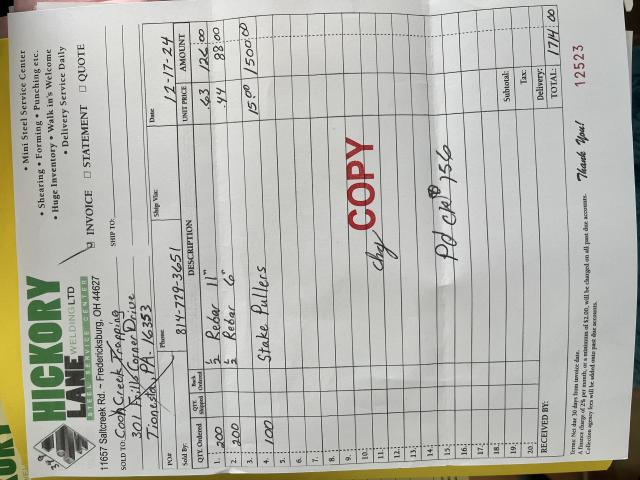 HICKORY
LANE WELDING LTD
STEEL SERVICE CENTER
11657 Saltcreek Rd. - Fredericksburg, OH 44627
• Mini Steel Service Center
• Shearing • Forming • Punching etc.
• Huge Inventory • Walk in's Welcome
• Delivery Service Daily
INVOICE STATEMENT QUOTE
SOLD TO: Cook Creek Trapping
301 Fells Corner Drive
Tionesta, PA. 16353
SHIP TO:
PO# Phone Ship Via: Date
814-779-3651 12-17-24
Sold By:
QTY. Ordered QTY. Shipped Back Ordered DESCRIPTION UNIT PRICE AMOUNT
1. 200 1/2 Rebar 11" .63 126.00
2. 200 1/2 Rebar 6" .44 88.00
3.
4. 100 Stake Pullers 15.00 1500.00
5.
6.
7.
8.
9.
10.
11.
12.
13.
14.
15.
16.
17.
18.
19.
20.
COPY
chg
Pd ck# 156
Subtotal:
Tax:
Delivery:
TOTAL: 1714.00
RECEIVED BY:
Terms: Net due 30 days from invoice date.
A finance charge of 2% per month, or a minimum of $2.00, will be charged on all past due accounts.
Collection agency fees will be added onto past due accounts.
Thank You!
12523